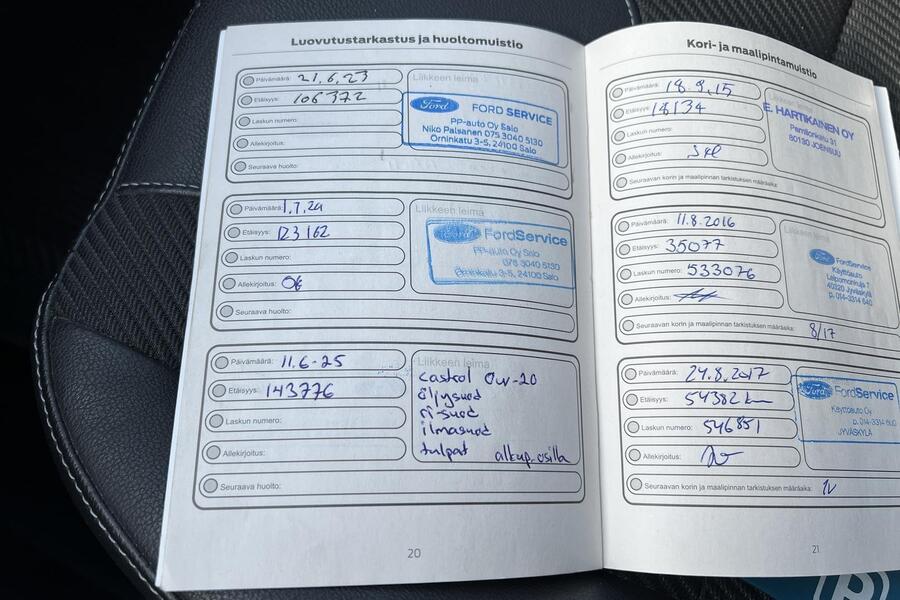 Luovutustarkastus ja huoltomuistio
Päivämäärä: 21.6.23
Etäisyys: 106372
Laskun numero:
Allekirjoitus:
Seuraava huolto:
Liikkeen leima
Ford FORD SERVICE
PP-auto Oy Salo
Niko Palsanen 075 3040 5130
Örninkatu 3-5, 24100 Salo
Päivämäärä: 1.7.24
Etäisyys: 123162
Laskun numero:
Allekirjoitus:
Seuraava huolto:
Liikkeen leima
Ford FordService
PP-auto Oy Salo
075 3040 5130
Örninkatu 3-5, 24100 Salo
Päivämäärä: 11.6-25
Etäisyys: 143776
Laskun numero:
Allekirjoitus:
Seuraava huolto:
Liikkeen leima
castrol 0w-20
öljysuod
ri-suod
ilmasuod
tulpat alkup.osilla
20
Kori- ja maalipintamuistio
Päivämäärä: 18.9.15
Etäisyys: 18134
Laskun numero:
Allekirjoitus:
Seuraavan korin ja maalipinnan tarkistuksen määräaika:
Liikkeen leima
E. HARTIKAINEN OY
Pamilonkatu 31
80130 JOENSUU
Päivämäärä: 11.8.2016
Etäisyys: 35077
Laskun numero: 533076
Allekirjoitus:
Seuraavan korin ja maalipinnan tarkistuksen määräaika: 8/17
Liikkeen
Ford FordService
Käyttöauto
40320 Jyväskylä
p. 014-3314 640
Päivämäärä: 24.8.2017
Etäisyys: 54382 km
Laskun numero: 546851
Allekirjoitus:
Seuraavan korin ja maalipinnan tarkistuksen määräaika: 1v
Ford FordService
Käyttöauto Oy
p. 014-3314 600
JYVÄSKYLÄ
21